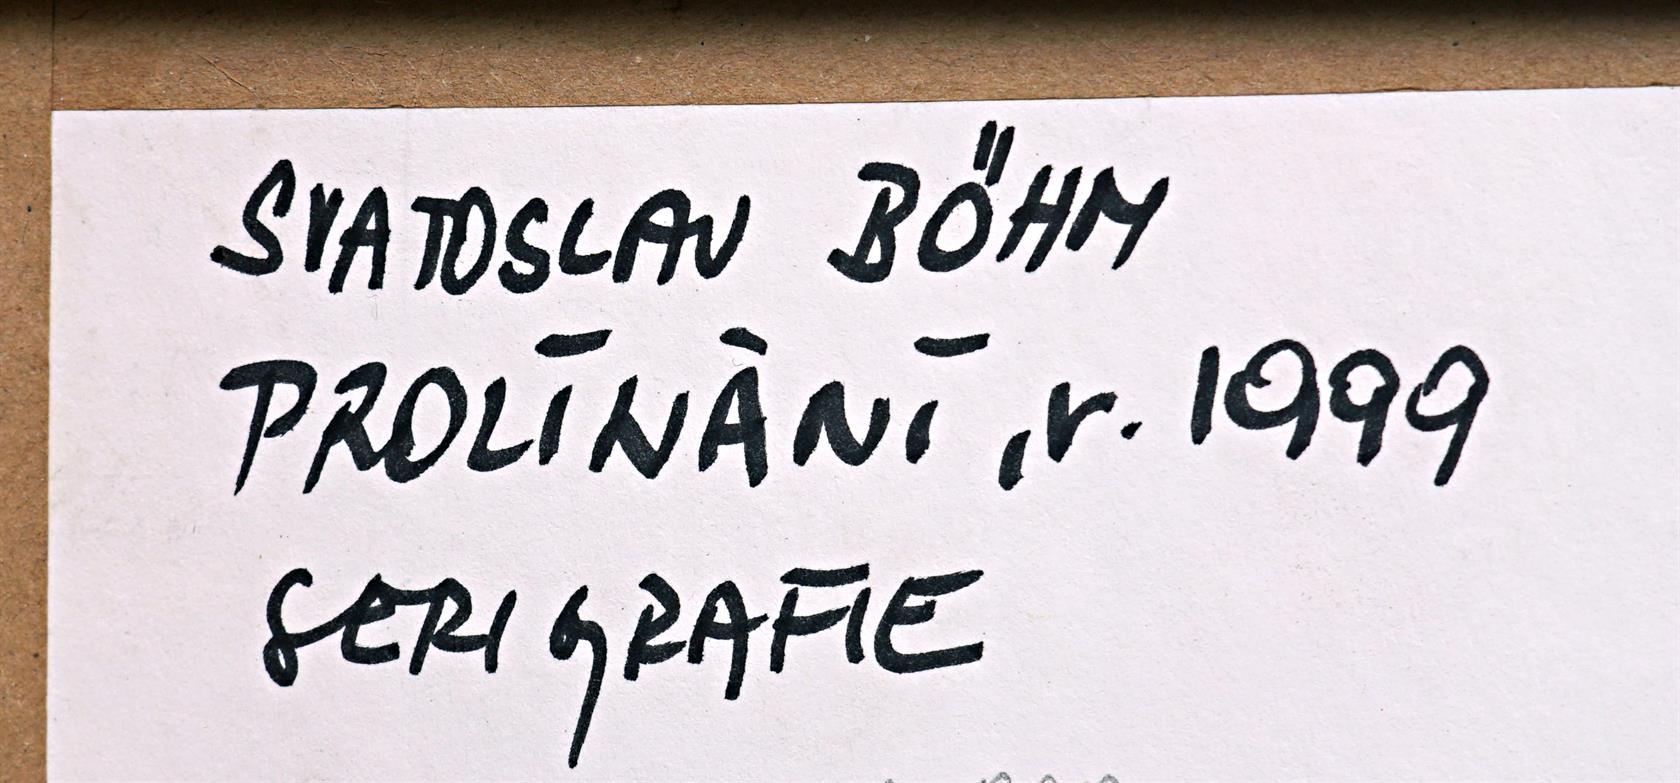 SVATOSLAV BÖHM
PROLÍNÁNÍ, r. 1999
SERIGRAFIE